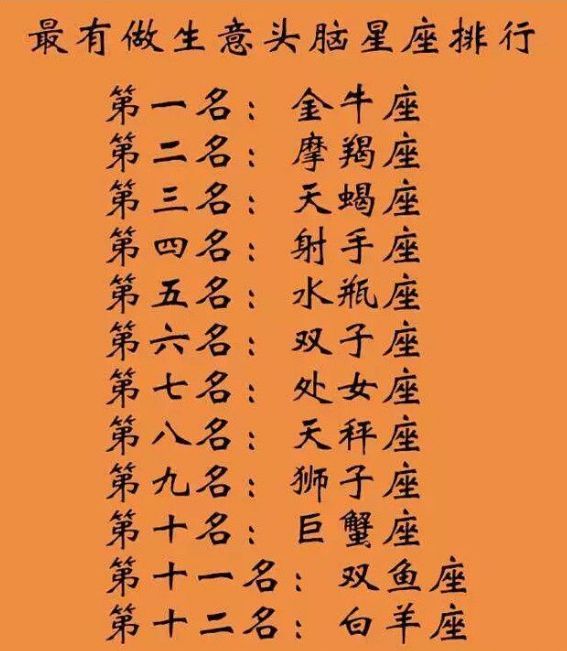 最有做生意头脑星座排行
第一名：金牛座
第二名：摩羯座
第三名：天蝎座
第四名：射手座
第五名：水瓶座
第六名：双子座
第七名：处女座
第八名：天秤座
第九名：狮子座
第十名：巨蟹座
第十一名：双鱼座
第十二名：白羊座